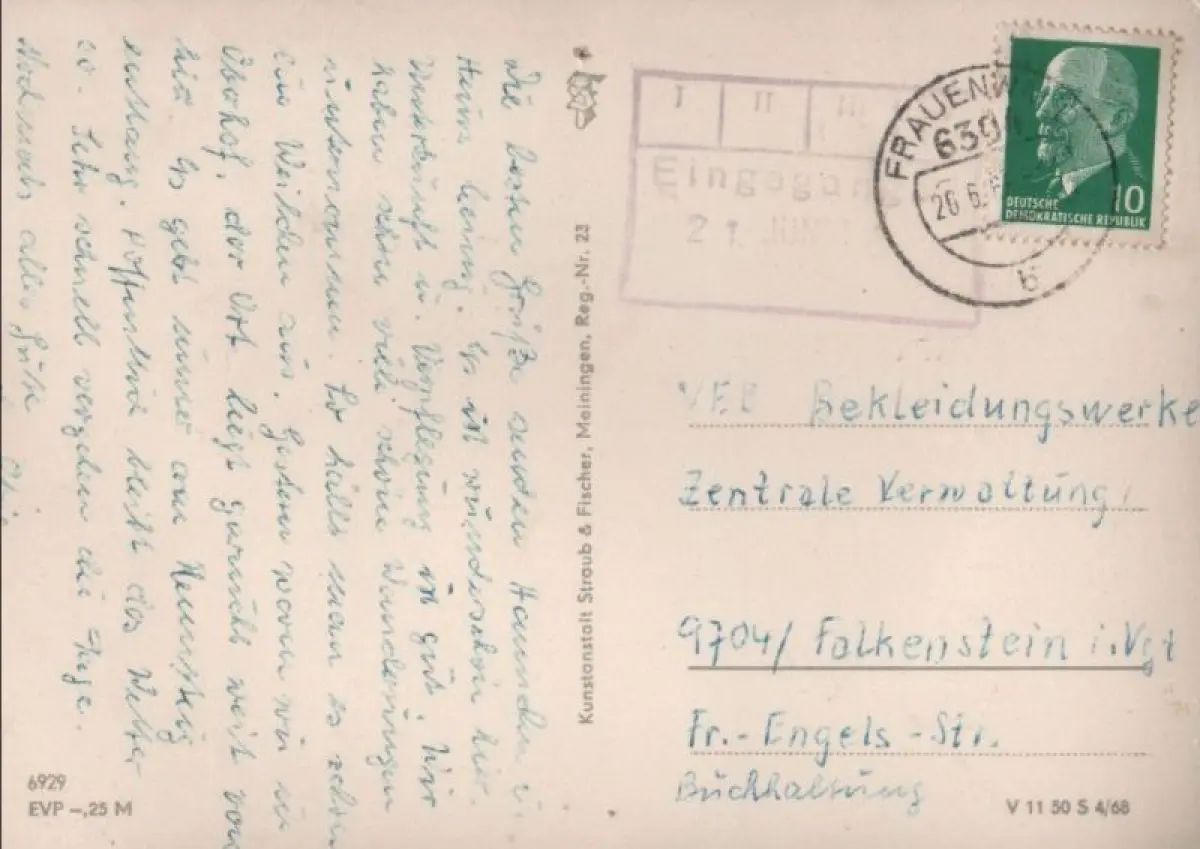 Die besten Grüße senden Hannchen u.
Heinz. Es ist wunderschön hier.
Unterkunft u. Verpflegung ist gut. Wir
haben schon viele schöne Wanderungen
unternommen. So hält man es schon
ein Weilchen aus. Gestern waren wir in
Oberhof, der Ort liegt garnicht weit von
hier. Es geht immer am Rennsteig
entlang. Hoffentlich bleibt das Wetter
so. Sehr schnell vergehen die Tage.
Nochmals alles Gute
Kunstanstalt Straub & Fischer, Meiningen, Reg.-Nr. 23
6929
EVP –,25 M
I II III
Eingegang
21. JUN
FRAUENW
630
20.6.
b
DEUTSCHE
DEMOKRATISCHE REPUBLIK
10
VEB Bekleidungswerke
Zentrale Verwaltung,
9704/ Falkenstein i. Vgt
Fr.-Engels-Str.
Buchhaltung
V 11 50 S 4/68